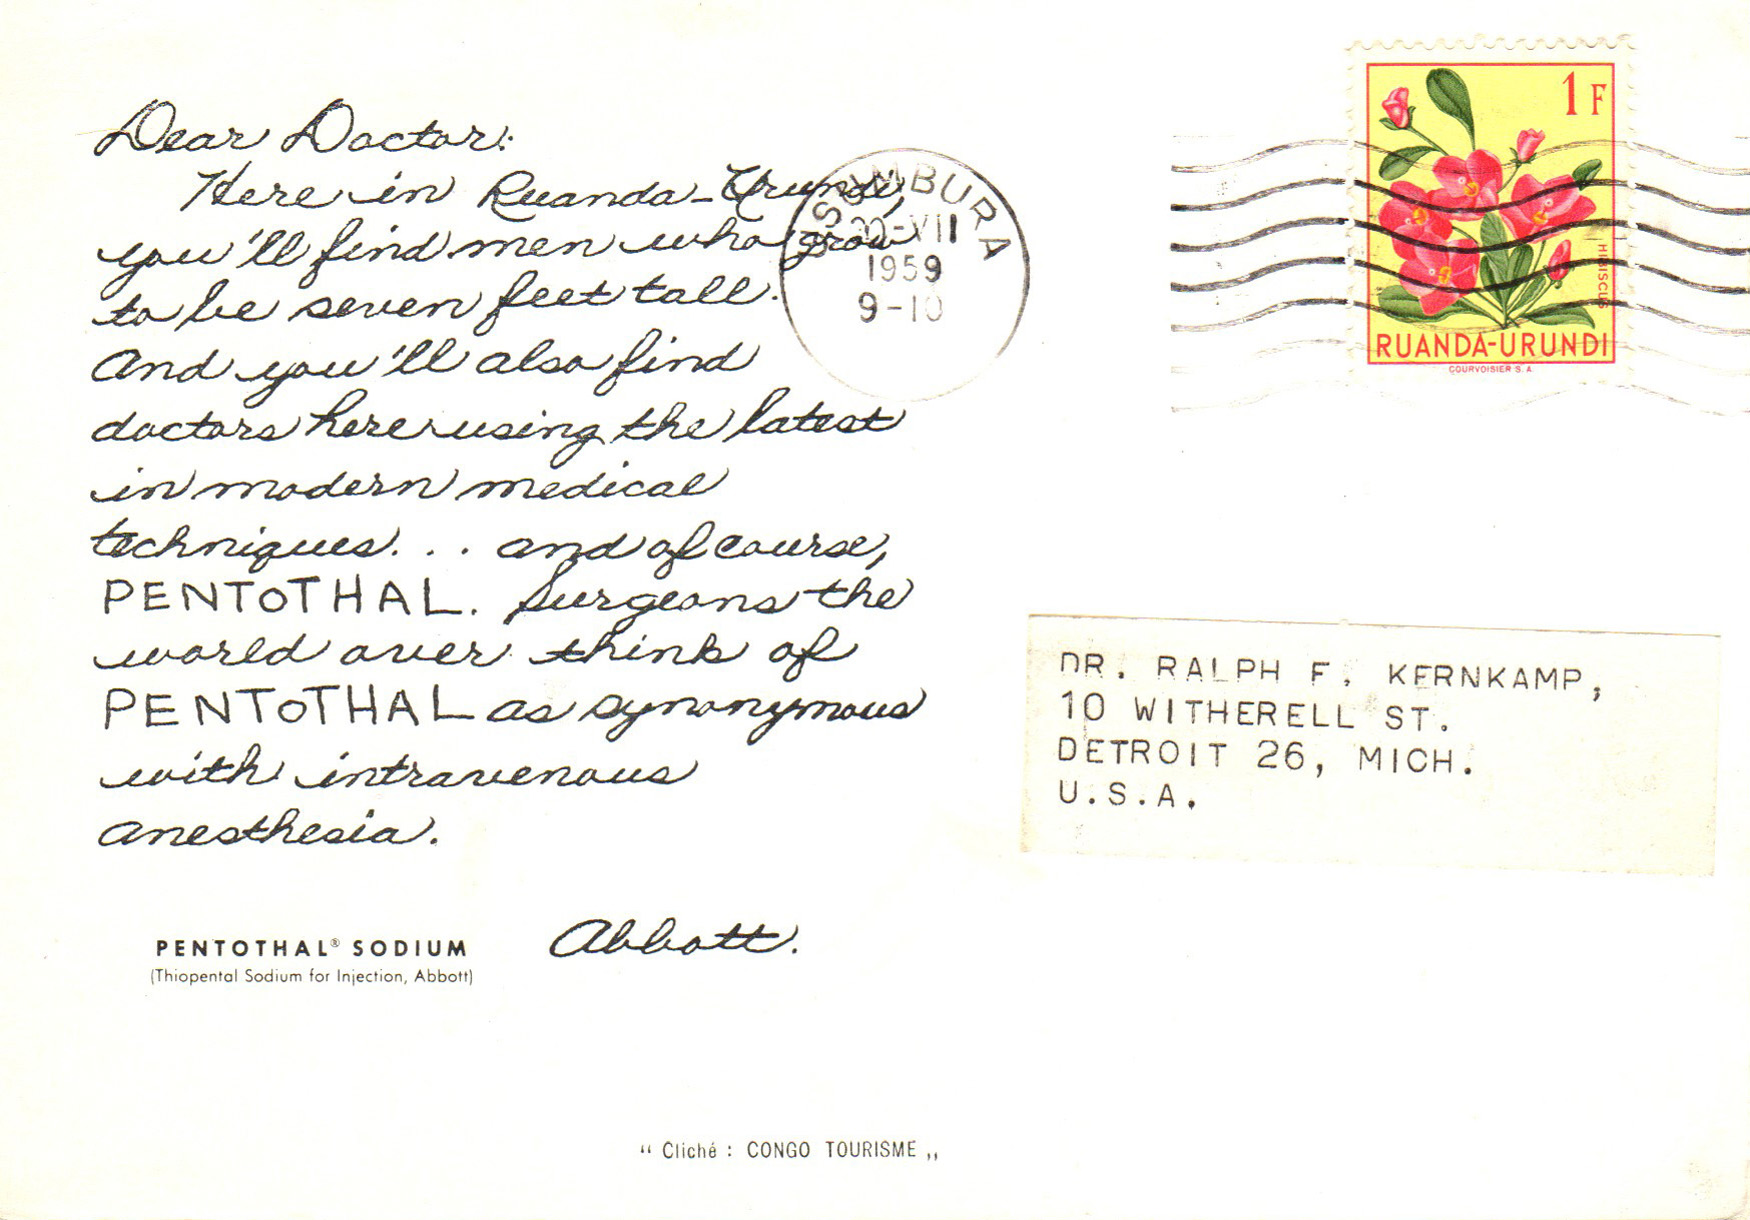 Dear Doctor:
Here in Ruanda-Urundi,
you'll find men who grow
to be seven feet tall.
And you'll also find
doctors here using the latest
in modern medical
techniques. . . and of course,
PENTOTHAL. Surgeons the
world over think of
PENTOTHAL as synonymous
with intravenous
anesthesia.
Abbott.
PENTOTHAL® SODIUM
(Thiopental Sodium for Injection, Abbott)
"Cliché : CONGO TOURISME„
USUMBURA
-VII
1959
9-10
1 F
HIBISCUS
RUANDA-URUNDI
COURVOISIER S.A.
DR. RALPH F. KERNKAMP,
10 WITHERELL ST.
DETROIT 26, MICH.
U.S.A.